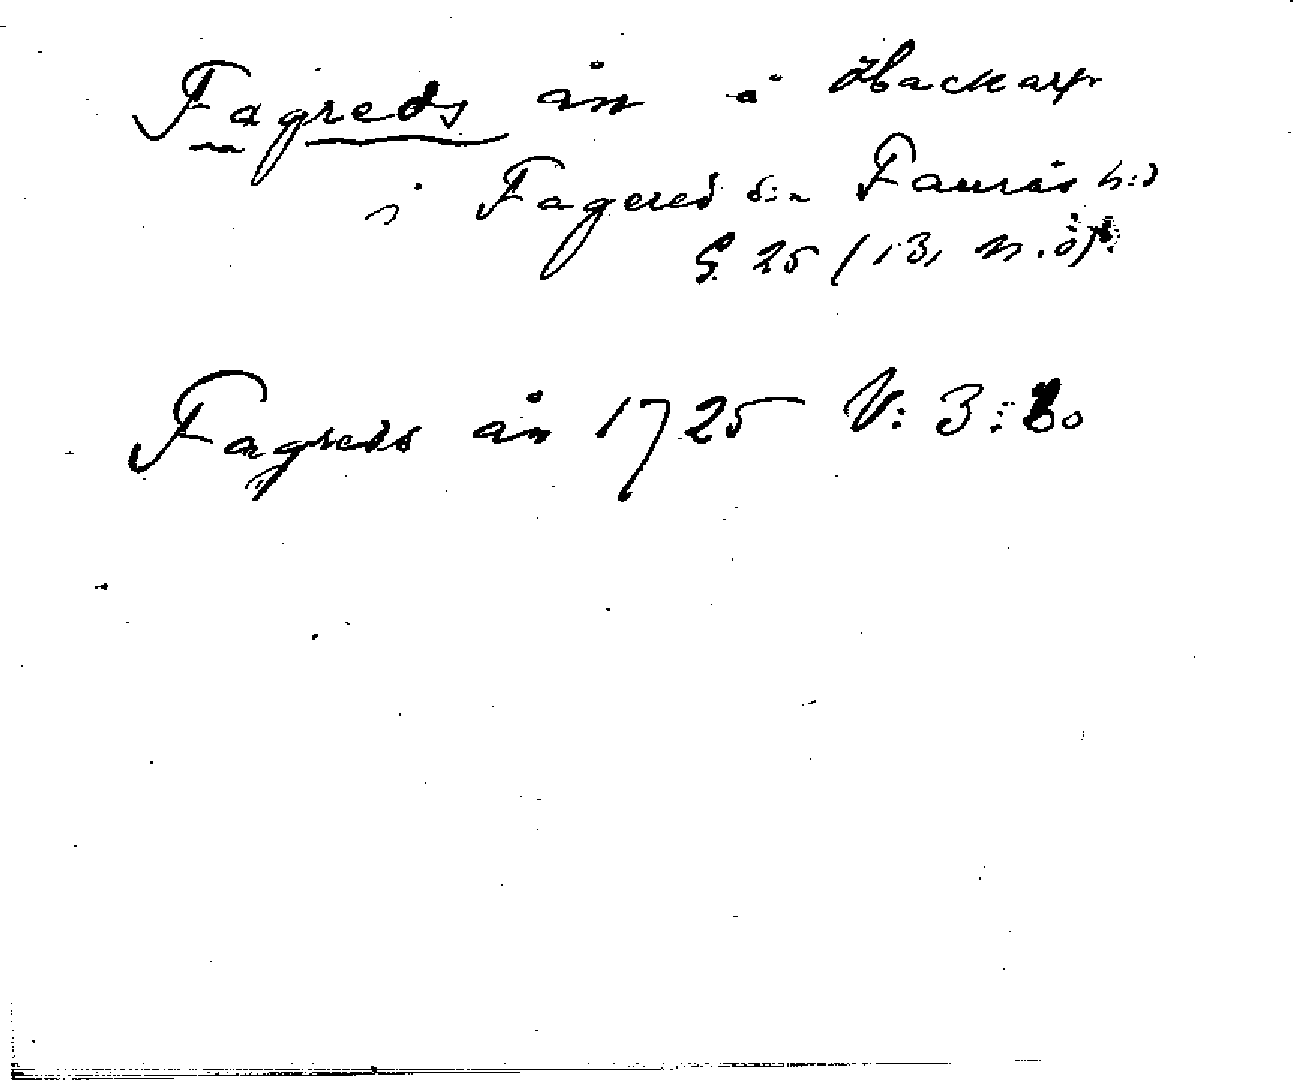 Fagreds ån å Backarp
i Fagered s:n Faurås h:d
G. 25 (13, n.ö).
Fagreds ån 1725 V: 3: 80